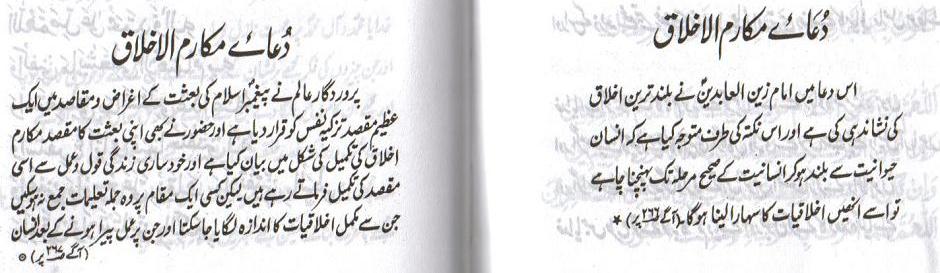 دُعَائے مکارم الاخلاق
اس دعا میں امام زین العابدینؑ نے بلند ترین اخلاق
کی نشاندہی کی ہے اور اس نکتہ کی طرف متوجہ کیا ہے کہ انسان
حیوانیت سے بلند ہوکر انسانیت کے صحیح مرحلہ تک پہنچنا چاہے
تو اسے انھیں اخلاقیات کا سہارا لینا ہوگا۔ (آگے پر) *
دُعائے مکارم الاخلاق
پروردگار عالم نے پیغمبرؐ اسلام کی بعثت کے اغراض و مقاصد میں ایک
عظیم مقصد تزکیۂ نفس کو قرار دیا ہے اور حضور نے بھی اپنی بعثت کا مقصد مکارم
اخلاق کی تکمیل کی شکل میں بیان کیا ہے اور خود ساری زندگی قول و عمل سے اسی
مقصد کی تکمیل فرماتے رہے ہیں۔ لیکن کسی ایک مقام پر وہ جملہ تعلیمات جمع نہ ہوسکیں
جن سے مکمل اخلاقیات کا اندازہ لگایا جاسکتا اور جن پر عمل پیرا ہونے کے بعد انسان
(آگے پر)